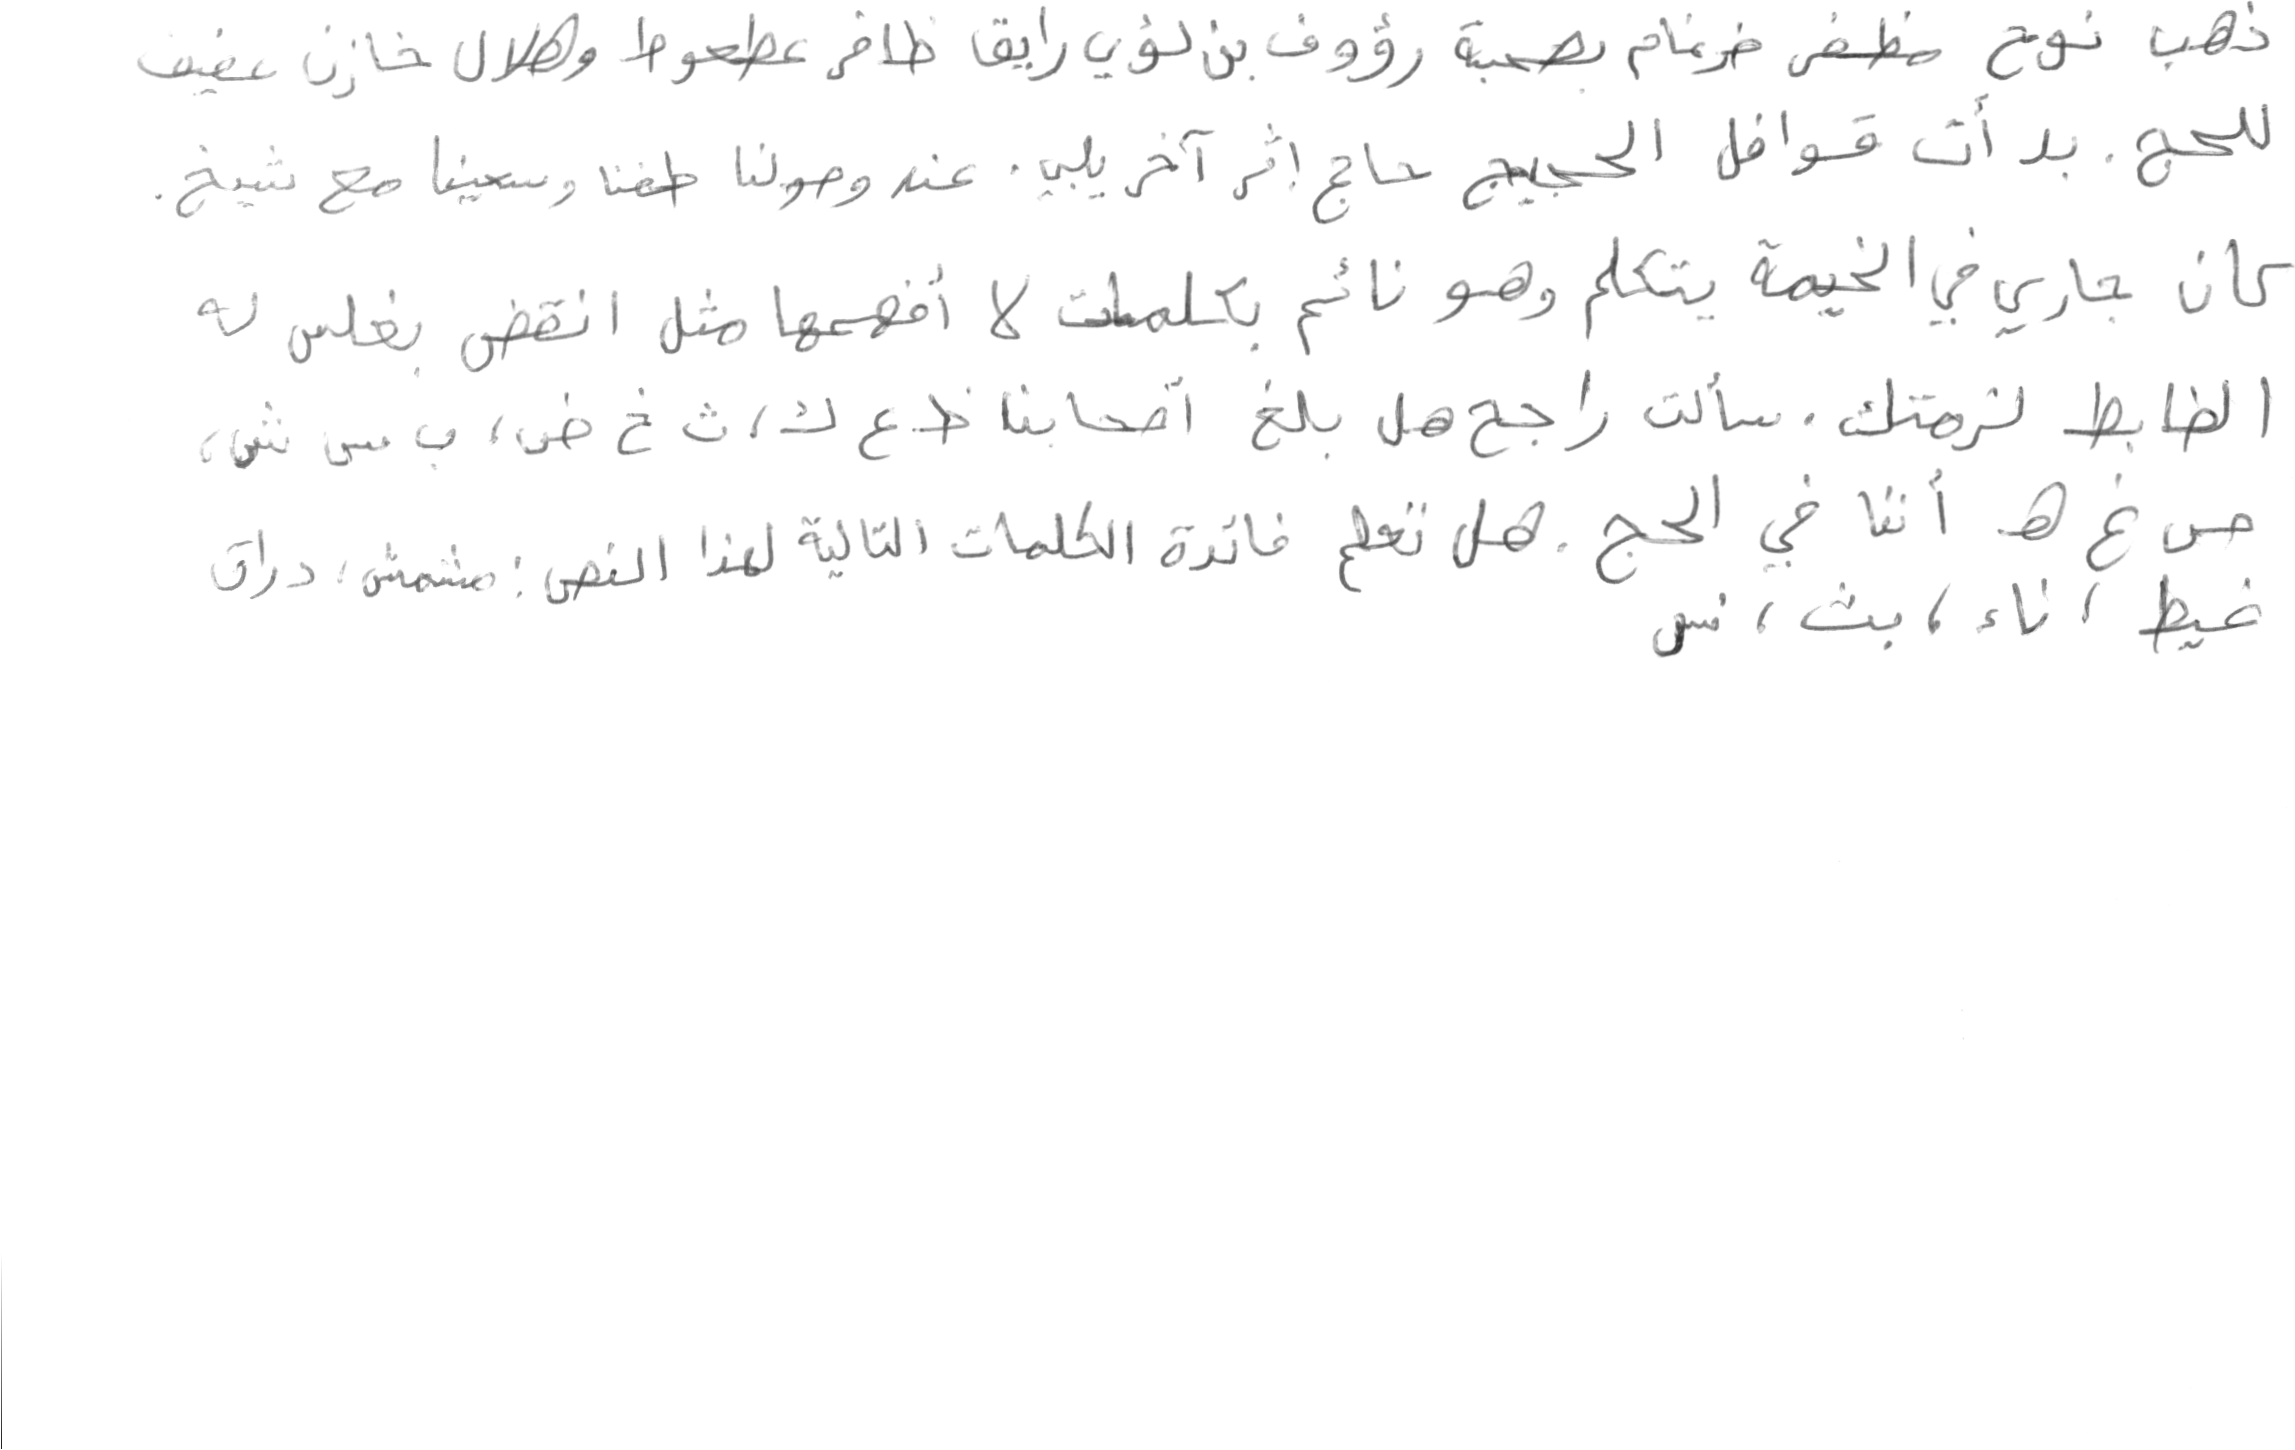 ذهب نوح مظفر ضرغام بصحبة رؤوف بن لؤي رايقا ظافر عطعوط وهلال خازن عفيف
للحج. بدأت قوافل الحجيج حاج إثر آخر يلبي. عند وصولنا طفنا وسعينا مع شيخ.
كان جاري في الخيمة يتكلم وهو نائم بكلمات لا أفهمها مثل انقض بغلس له
الضابط لنزهتك. سألت راجح هل بلغ أصحابنا ظ ع ك، ث خ ض، ب س ش،
ص غ ه أننا في الحج. هل تعلم فائدة الكلمات التالية لهذا النص: مشمش، دراق
غيظ، ناء، بث، نس